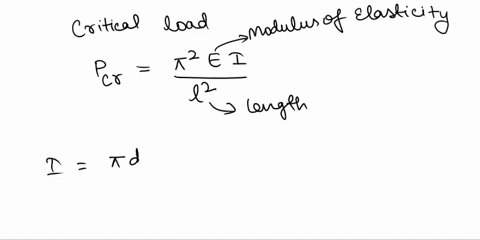 Critical load
Modulus of Elasticity
Pcr = π² E I / l²
length
I = πd